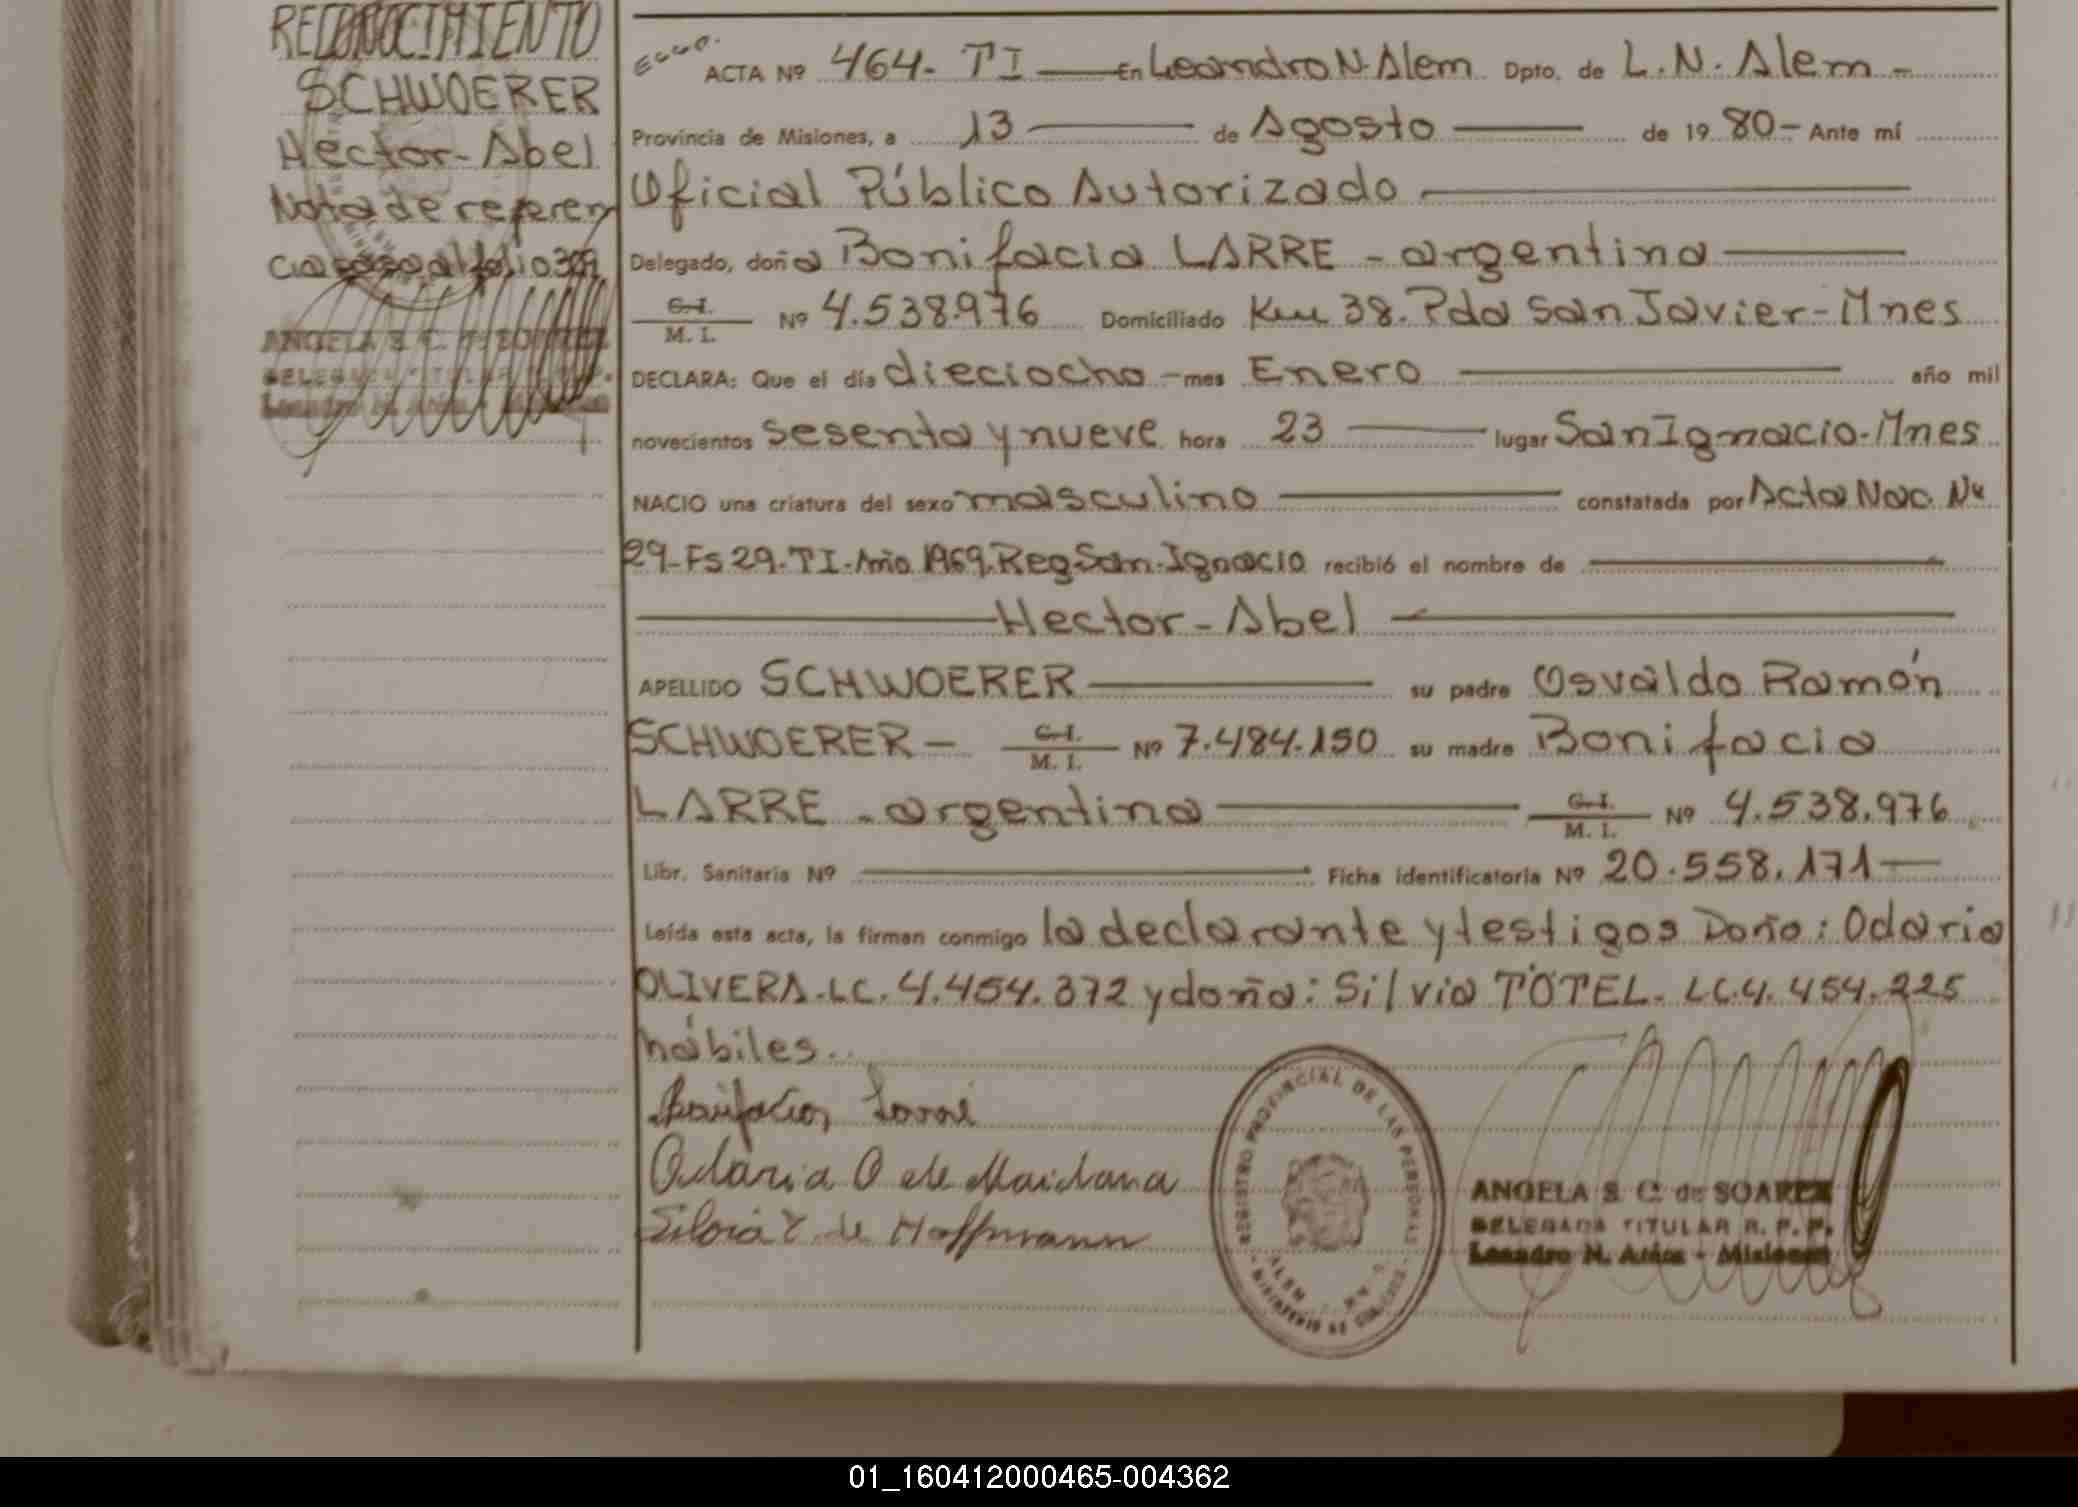 RECONOCIMIENTO
SCHWOERER
Hector-Abel
Nota de referen
cia paso al folio 309
ANGELA S. C. de SOAREZ
DELEGADA TITULAR R. P. P.
Leandro N. Alem - Misiones
ACTA Nº 464- TI — En Leandro N. Alem Dpto. de L. N. Alem -
Provincia de Misiones, a 13 — de Agosto — de 19 80- Ante mí
Oficial Público Autorizado
Delegado, doña Bonifacia LARRE - argentina
C.I. / M. I. Nº 4.538.976 Domiciliado Km 38. Pda San Javier-Mnes
DECLARA: Que el día dieciocho - mes Enero — año mil
novecientos sesenta y nueve hora 23 — lugar San Ignacio-Mnes
NACIO una criatura del sexo masculino — constatada por Acta Nac. Nº
29-Fs 29-TI-Año 1969. Reg San-Ignacio recibió el nombre de
Hector-Abel
APELLIDO SCHWOERER — su padre Osvaldo Ramón
SCHWOERER - C.I. / M. I. Nº 7.484.150 su madre Bonifacia
LARRE - argentina — C.I. / M. I. Nº 4.538.976
Libr. Sanitaria Nº — Ficha identificatoria Nº 20.558.171 —
Leída esta acta, la firman conmigo la declarante y testigos Doña: Odaria
OLIVERA. LC. 4.454.372 y doña: Silvia TÖTEL. LC. 4.454.225
hábiles.
Bonifacia Larre
Odaria O de Maidana
Silvia T. de Hoffmann
REGISTRO PROVINCIAL DE LAS PERSONAS
ALEM
MINISTERIO DE GOBIERNO
ANGELA S. C. de SOAREZ
DELEGADA TITULAR R. P. P.
Leandro N. Alem - Misiones
01_160412000465-004362